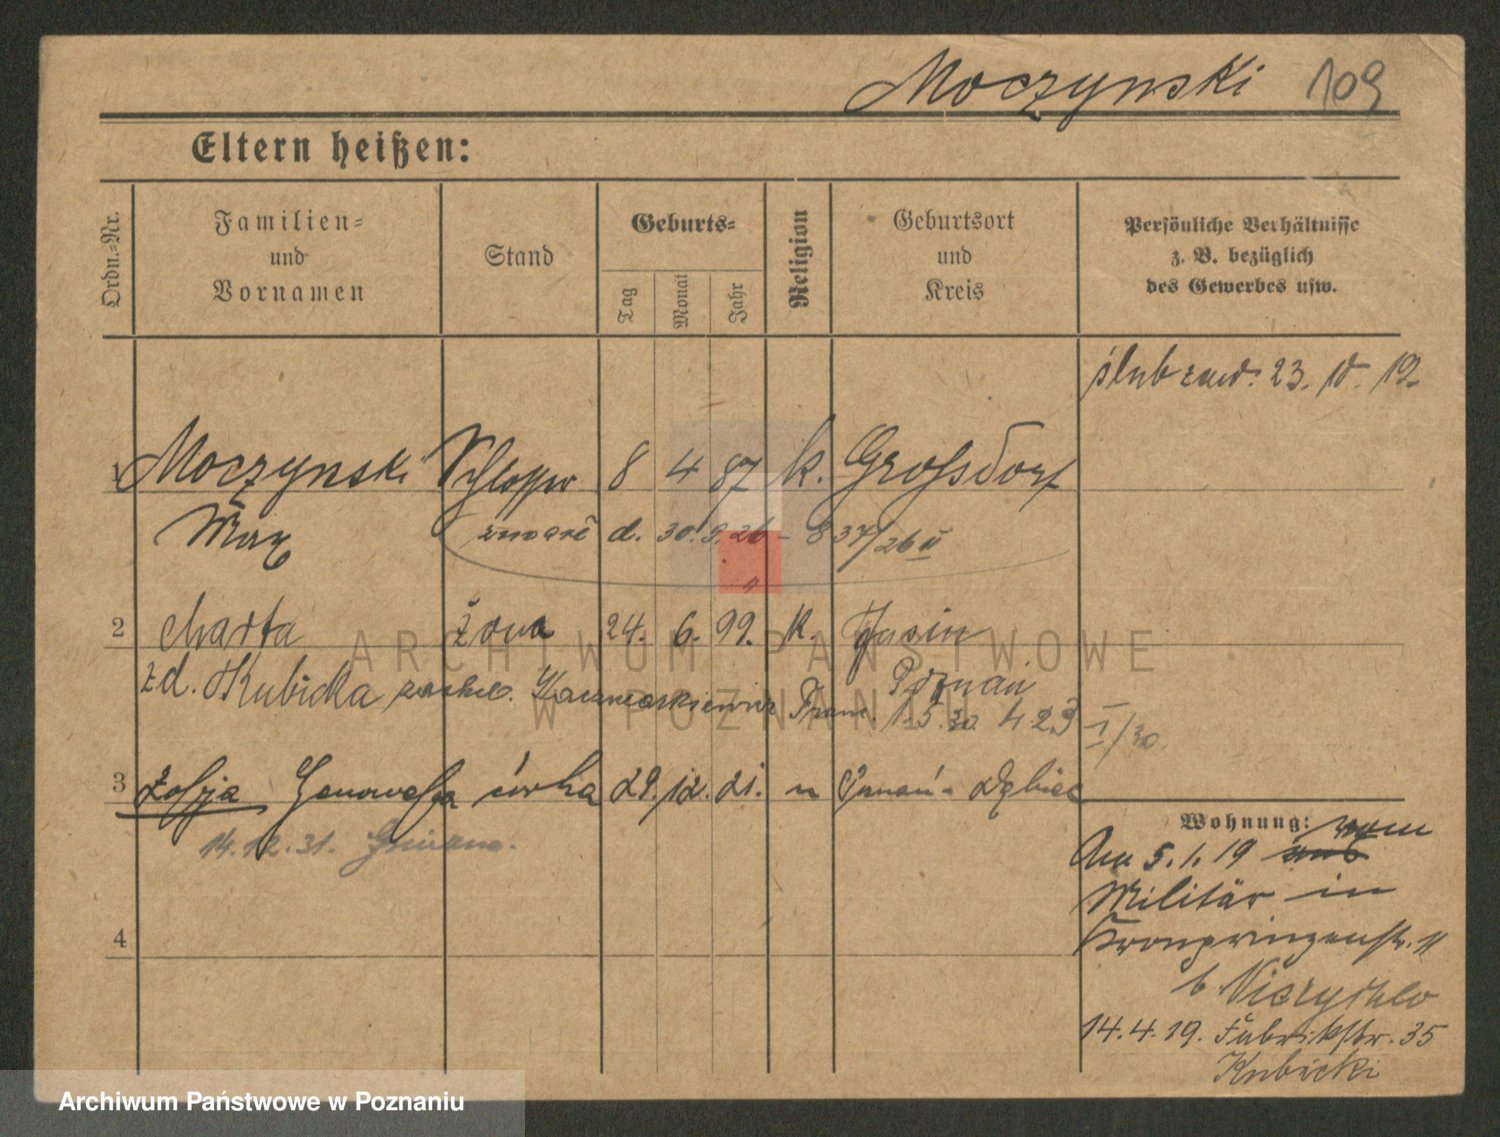 Moczynski 109
Eltern heißen:
Ordn.=Nr.
Familien=
und
Vornamen
Stand
Geburts=
Tag
Monat
Jahr
Religion
Geburtsort
und
Kreis
Persönliche Verhältnisse
z. B. bezüglich
des Gewerbes usw.
ślub zaw. 23. 10. 19.
1 Moczynski Schlosser 8 4 87 k. Grossdorf
Max zmarł d. 30. 9. 26 - 837/26 II
2 Marta żona 24. 6. 99. k. Jasin
zd. Kubicka Kaczmarkiewicz Franc. 1.5.30. 423 I/30.
Poznań
3 Zofja Genowefa córka 29. 12. 21. " Poznań - Dębiec
14.12.31.
4
Wohnung:
Am 5. 1. 19 vom
Militär in
Kronprinzenstr. 11
b
14. 4. 19. Fabrikstr. 35
Kubicki
ARCHIWUM PAŃSTWOWE
W POZNANIU
Archiwum Państwowe w Poznaniu